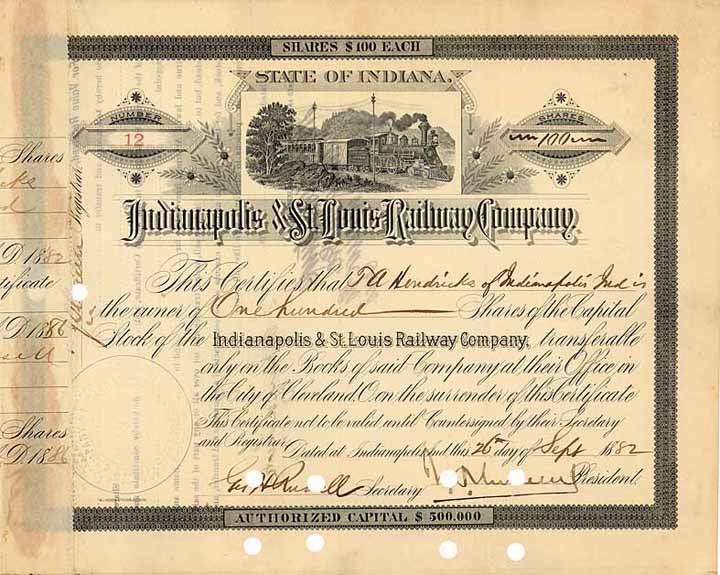 SHARES $100 EACH
STATE OF INDIANA.
NUMBER
12
SHARES
100
Indianapolis & St. Louis Railway Company
This Certifies that T A Hendricks of Indianapolis Ind is
the owner of One hundred Shares of the Capital
Stock of the Indianapolis & St. Louis Railway Company, transferable
only on the Books of said Company at their Office in
the City of Cleveland O. on the surrender of this Certificate
This Certificate not to be valid until Countersigned by their Secretary
and Registrar.
Dated at Indianapolis Ind this 26th day of Sept 1882
Geo H Russell Secretary
President.
AUTHORIZED CAPITAL $500,000
Registrar.
Shares
D 1882
tificate
D 1886
Shares
D. 1886